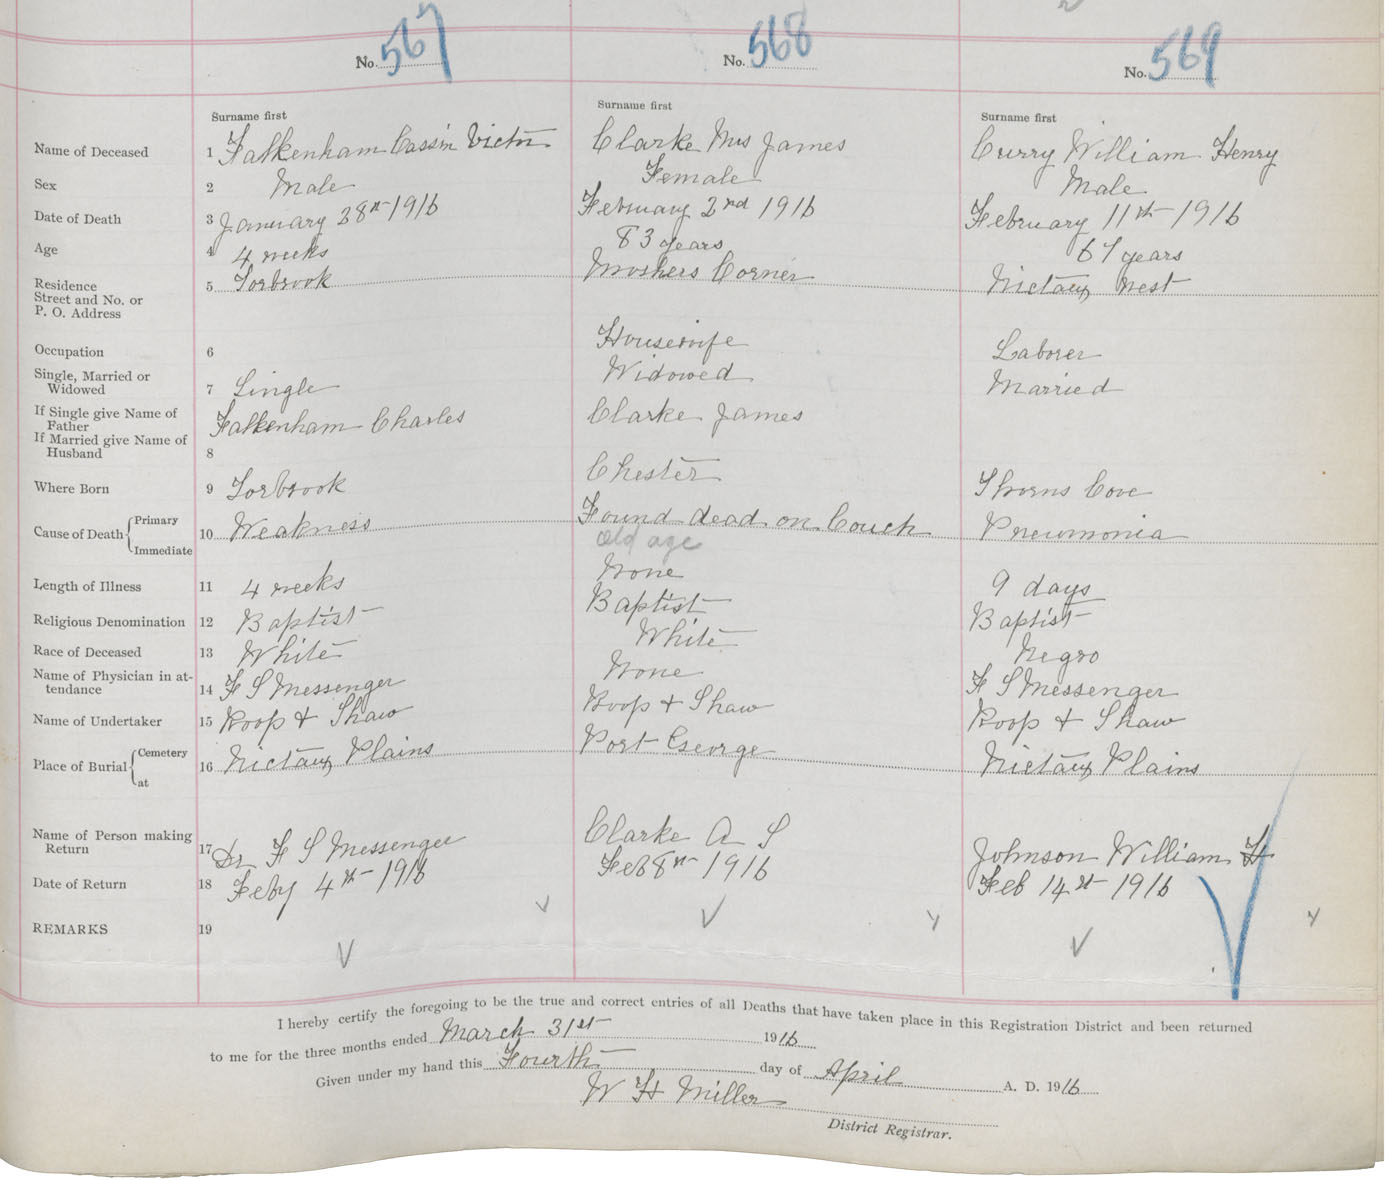 No. 567 No. 568 No. 569
Surname first Surname first Surname first
Name of Deceased 1 Falkenham Cassin Victor Clarke Mrs James Curry William Henry
Sex 2 Male Female Male
Date of Death 3 January 28th 1916 February 2nd 1916 February 11th 1916
Age 4 4 weeks 83 years 67 years
Residence Street and No. or P. O. Address 5 Torbrook Moshers Corner Nictaux West
Occupation 6 Housewife Laborer
Single, Married or Widowed 7 Single Widowed Married
If Single give Name of Father Falkenham Charles Clarke James
If Married give Name of Husband 8
Where Born 9 Torbrook Chester Thorns Cove
Cause of Death Primary 10 Weakness Found dead on Couch Pneumonia
Immediate old age
Length of Illness 11 4 weeks None 9 days
Religious Denomination 12 Baptist Baptist Baptist
Race of Deceased 13 White White Negro
Name of Physician in attendance 14 F S Messenger None F S Messenger
Name of Undertaker 15 Roop + Shaw Roop + Shaw Roop + Shaw
Place of Burial Cemetery at 16 Nictaux Plains Port George Nictaux Plains
Name of Person making Return 17 Dr F S Messenger Clarke A S Johnson William H
Date of Return 18 Feby 4th 1916 Feb 8th 1916 Feb 14st 1916
REMARKS 19
I hereby certify the foregoing to be the true and correct entries of all Deaths that have taken place in this Registration District and been returned
to me for the three months ended March 31st 1916
Given under my hand this Fourth day of April A. D. 1916
W H Miller
District Registrar.